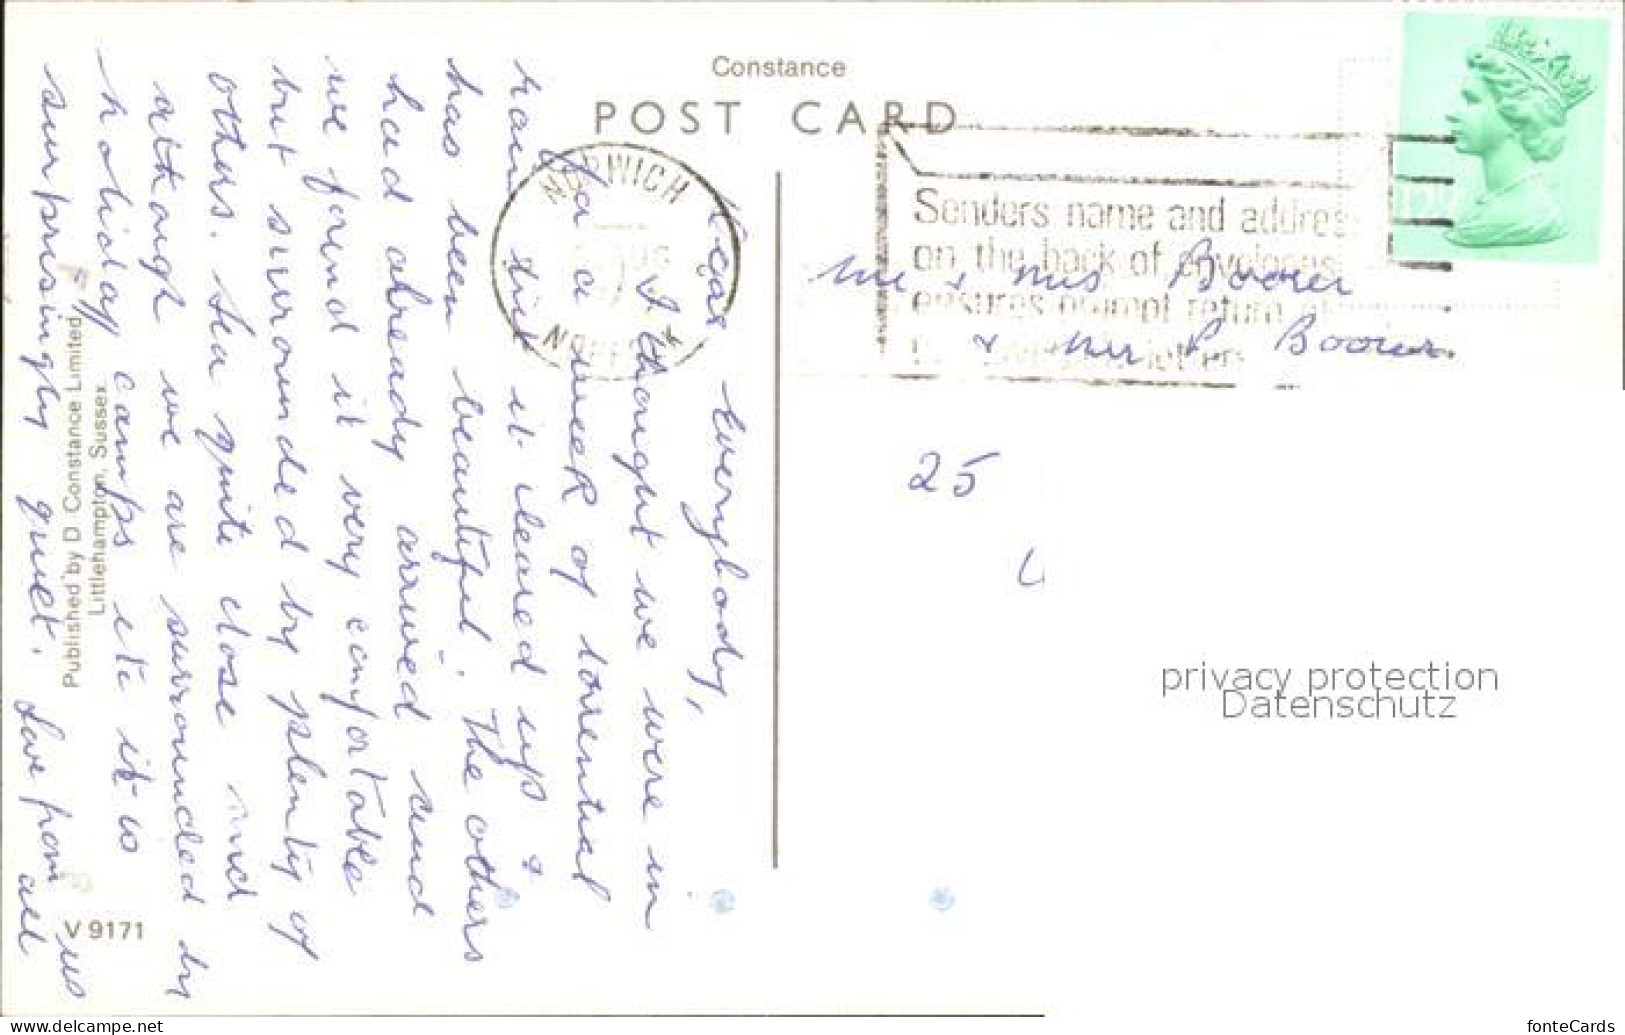 Constance
POST CARD
NORWICH
AUG
Senders name and address
on the back of envelopes
ensures prompt return of
letters
Dear Everybody,
I thought we were in
for a week of torrential
rain but it cleared up &
has been beautiful. The others
had already arrived and
we found it very comfortable
but surrounded by plenty of
others. Sea quite close and
although we are surrounded by
holiday camps etc it is
surprisingly quiet. Love from us
all
Mr & Mrs Boorer
& Mr P Boorer
25
Published by D Constance Limited
Littlehampton, Sussex.
V 9171
privacy protection
Datenschutz
www.delcampe.net
fonteCards